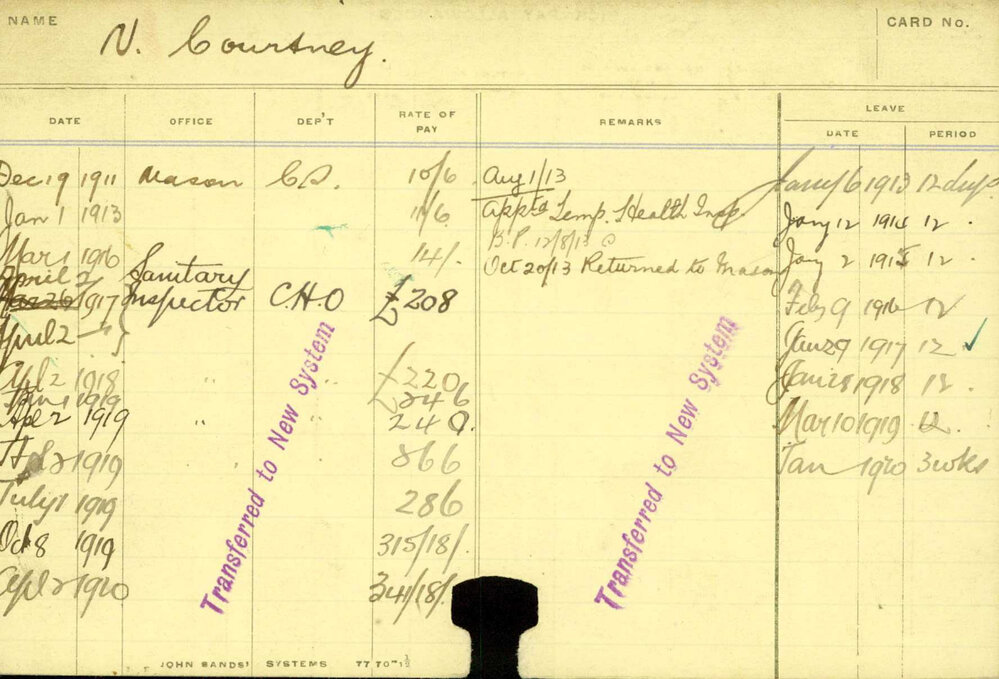 NAME N. Courtney. CARD No.
DATE OFFICE DEP'T RATE OF PAY REMARKS LEAVE
DATE PERIOD
Dec 19 1911 Mason C.S. 10/6 Aug 1/13 Jany 6 1913 12 days.
Jan 1 1913 11/6 Appt'd Temp. Health Insp Jany 12 1914 12 .
B.P. 12/8/13
Mar 1 1916 14/- Oct 20/13 Returned to Mason Jany 2 1915 12 .
April 2 Sanitary
1917 Inspector C.H.O £208 Feb 9 1916 12
April 2 Jan 29 1917 12 ✓
Apl 2 1918 " " £220 Jan 28 1918 12.
1919 246
Apl 2 1919 " 240. Mar 10 1919 12.
1919 " 266 Jan 1920 3 wks
July 1 1919 286
Oct 8 1919 315/18/-
Apl 2 1920 341/18/-
Transferred to New System
Transferred to New System
JOHN SANDS' SYSTEMS 77 70-1½